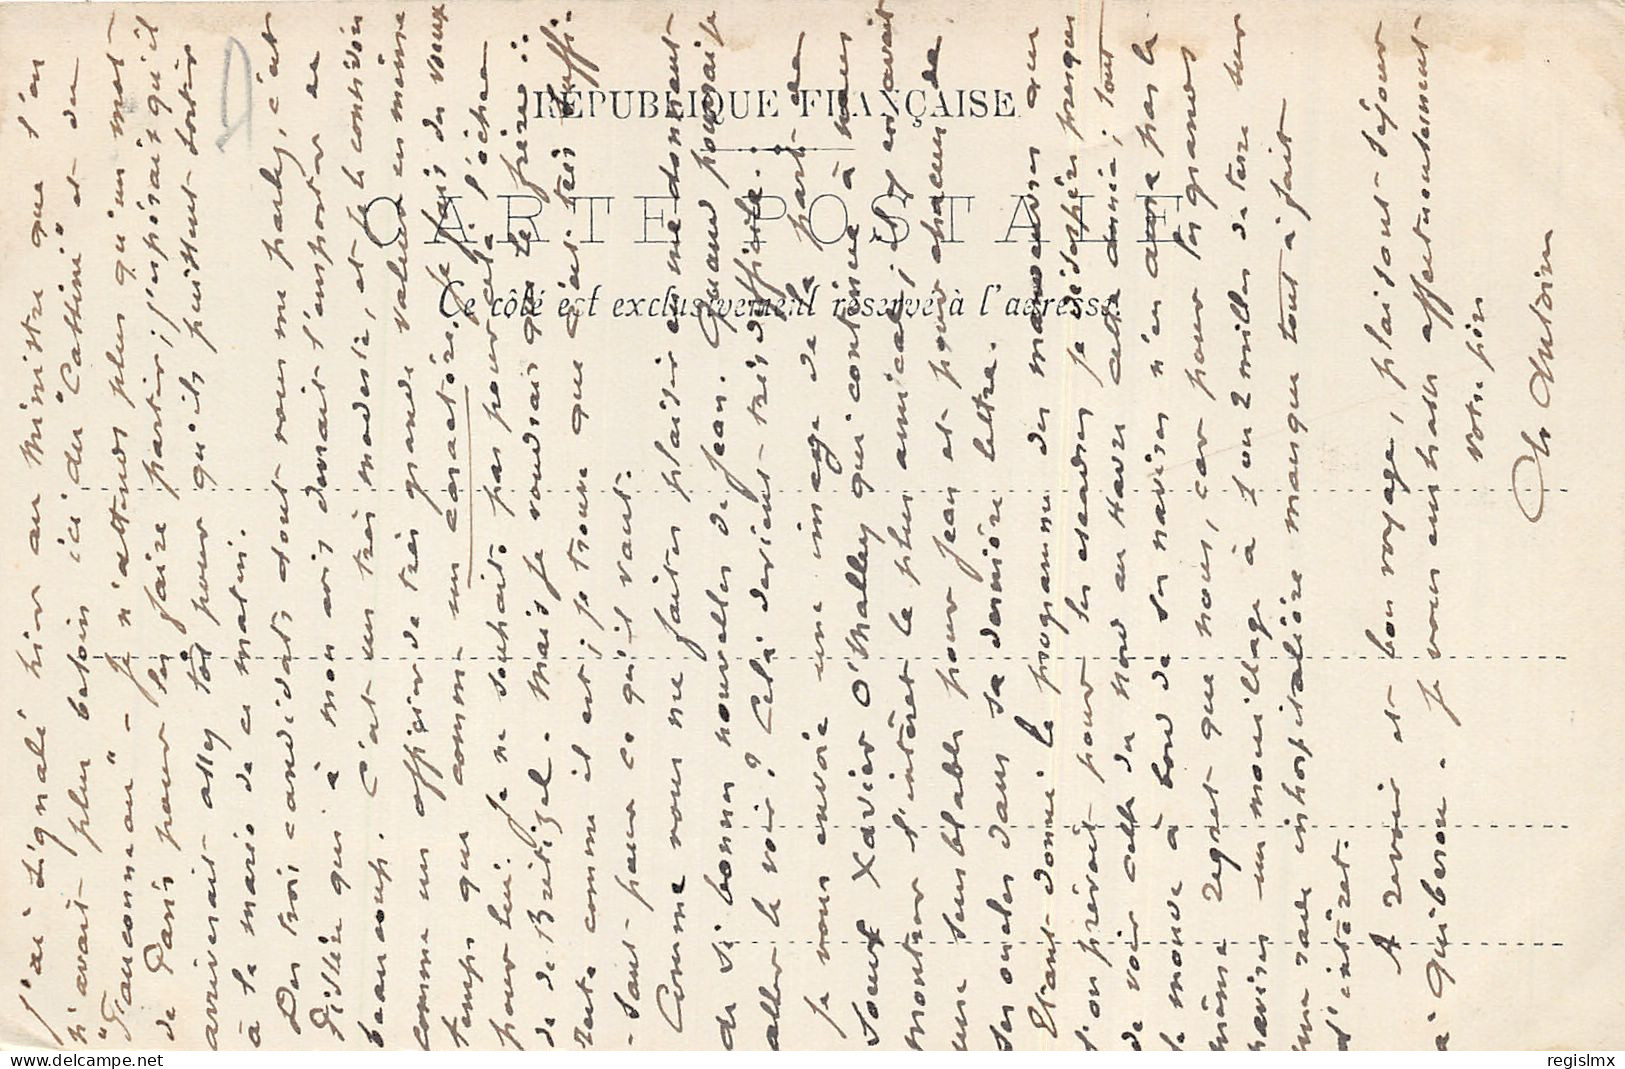 RÉPUBLIQUE FRANÇAISE
CARTE POSTALE
Ce côté est exclusivement réservé à l'adresse
J'ai signalé hier au Ministre que l'on
n'avait plus besoin ici du "Cassini" et du
"Fauconneau" - Je n'attends plus qu'un mot
de Paris pour les faire partir; j'espérais qu'il
arriverait assez tôt pour qu'ils puissent sortir
à la marée de ce matin.
Des trois candidats dont vous me parlez, c'est
qui à mon avis devrait l'emporter de
beaucoup. C'est un très modeste, et je le considère
comme un officier de très grande valeur en même
temps que comme un caractère. Je fais des vœux
pour lui. Je ne souhaite pas pour cela l'échec
de de Britizel. Mais je voudrais que le frère
reste comme il est; je trouve que c'est très suffi-
-sant pour ce qu'il vaut.
Comme vous me faites plaisir en me donnant
de si bonnes nouvelles de Jean. Quand pourrai-je
aller le voir? Cela devient très difficile.
Je vous envoie une image de la part de
Soeur Xavier O'Malley qui continue à nous
montrer l'intérêt le plus amical; il y en avait
une semblable pour Jean et pour chacun de
ses oncles dans sa dernière lettre.
Etant donné le programme des manœuvres que
l'on prévoit pour les escadres je désespère presque
de voir celle du Nord au Havre cette année; tout
se trouve à bord de ses navires n'en aura pas le
même regret que nous, car pour les grands
navires un mouillage à 1 ou 2 milles de terre sur
une rade inhospitalière manque tout à fait
d'intérêt.
A revoir et bon voyage, plaisant séjour
à Quiberon. Je vous embrasse affectueusement
votre père
Ch Antoine
regislmx
delcampe.net